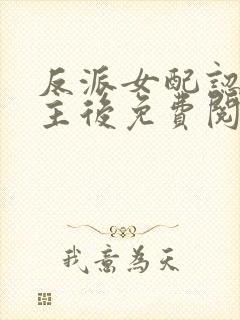 反派女配認
主後免費閱
我意為天